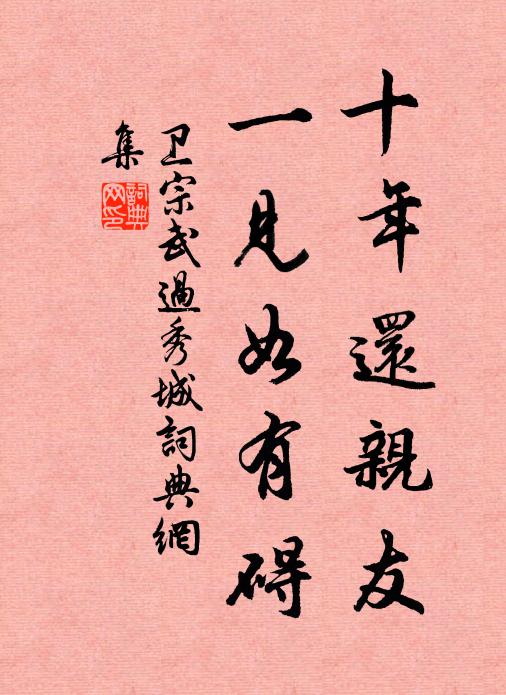 十年還親友
一見如有碍
卫宗武過秀城詞典網
集
詞典
网印